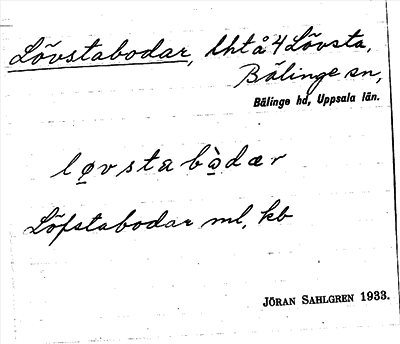 Lövstabodar, lht å 4 Lövsta,
Bälinge sn,
Bälinge hd, Uppsala län.
lø̱vstabò̱dær
Löfstabodar ml, kb
JÖRAN SAHLGREN 1933.